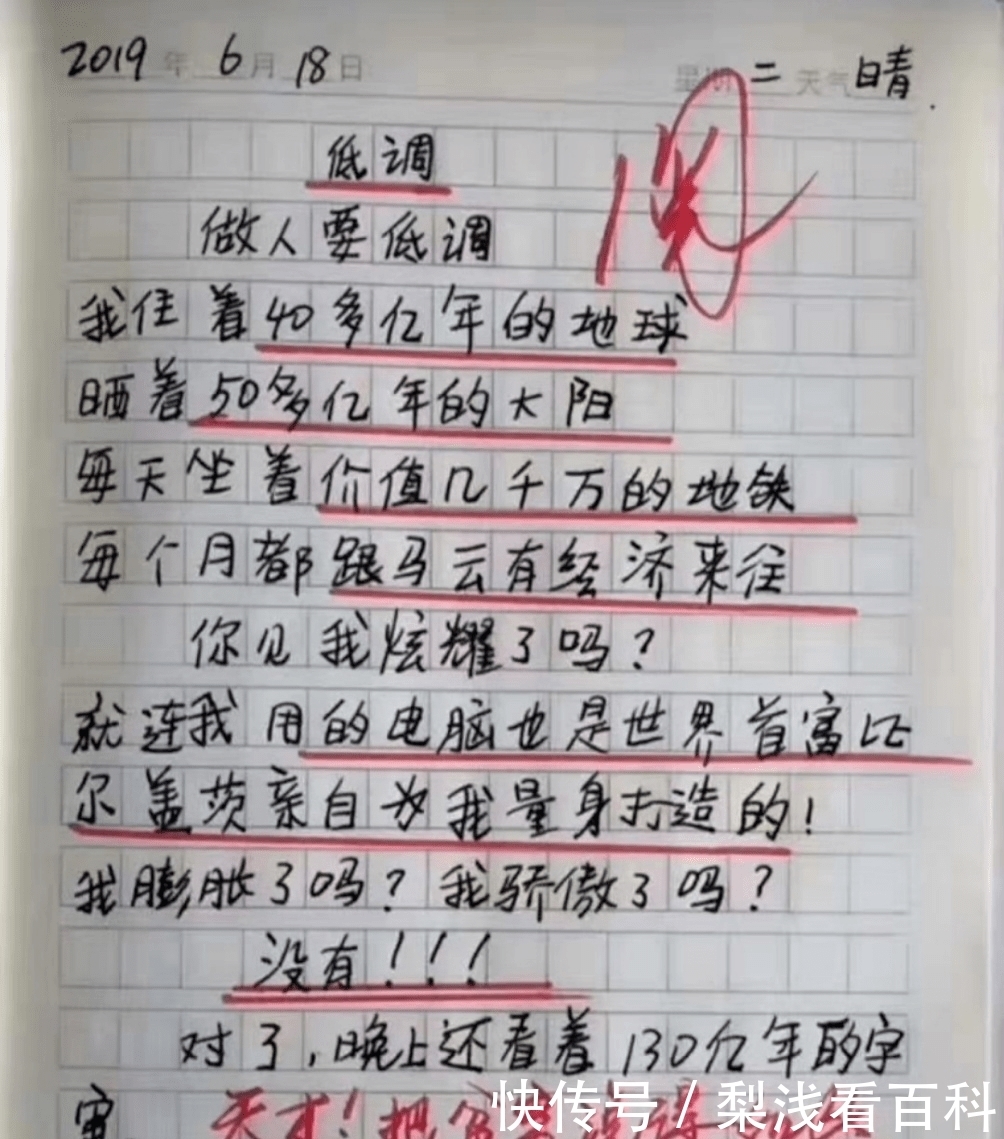 2019年 6月 18日 星期二 天气 晴
低调
做人要低调
我住着40多亿年的地球
晒着50多亿年的大阳
每天坐着价值几千万的地铁
每个月都跟马云有经济来往
你见我炫耀了吗?
就连我用的电脑也是世界首富比
尔盖茨亲自为我量身打造的!
我膨胀了吗?我骄傲了吗?
没有!!!
对了,晚上还看着130亿年的宇
宙
天才!把
快传号 / 梨浅看百科